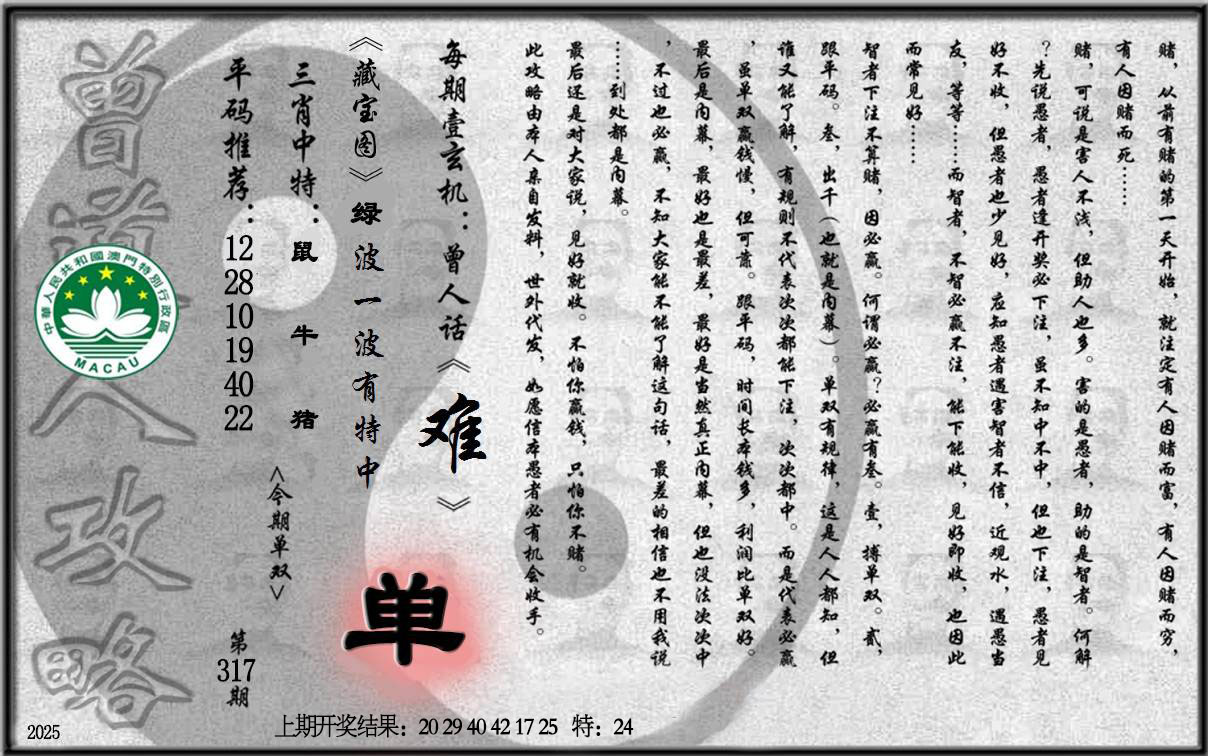 赌，从前有赌的第一天开始，就注定有人因赌而富，有人因赌而穷，
有人因赌而死……
赌，可说是害人不浅，但助人也多。害的是愚者，助的是智者。何解
？先说愚者，愚者逢开奖必下注，虽不知中不中，但也下注，愚者见
好不收，但愚者也少见好，应知愚者遇害智者不信，近观水，遇愚当
友，等等……而智者，不智必赢不注，能下能收，见好即收，也因此
而常见好……
智者下注不算赌，因必赢。何谓必赢？必赢有叁。壹，搏单双。贰，
跟平码。叁，出千（也就是内幕）。单双有规律，这是人人都知，但
谁又能了解，有规则不代表次次都能下注，次次都中。而是代表必赢
，虽单双赢钱慢，但可靠。跟平码，时间长本钱多，利润比单双好。
最后是内幕，最好也是最差，最好是当然真正内幕，但也没法次次中
，不过也必赢，不知大家能不能了解这句话，最差的相信也不用我说
……到处都是内幕。
最后还是对大家说，见好就收。不怕你赢钱，只怕你不赌。
此攻略由本人亲自发料，世外代发，如愿信本愚者必有机会收手。
每期壹玄机：曾人话《难》
《藏宝图》绿波一波有特中
单
三肖中特：鼠 牛 猪
<今期单双>
平码推荐：12 28 10 19 40 22
第317期
曾道人攻略
中華人民共和國澳門特別行政區
MACAU
2025
上期开奖结果：20 29 40 42 17 25 特：24